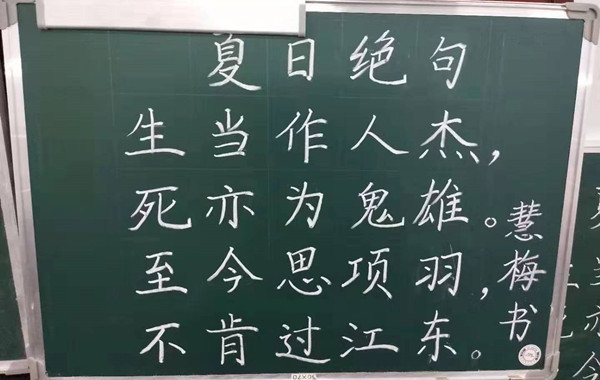 夏日绝句
生当作人杰，
死亦为鬼雄。
至今思项羽，
不肯过江东。
慧梅书